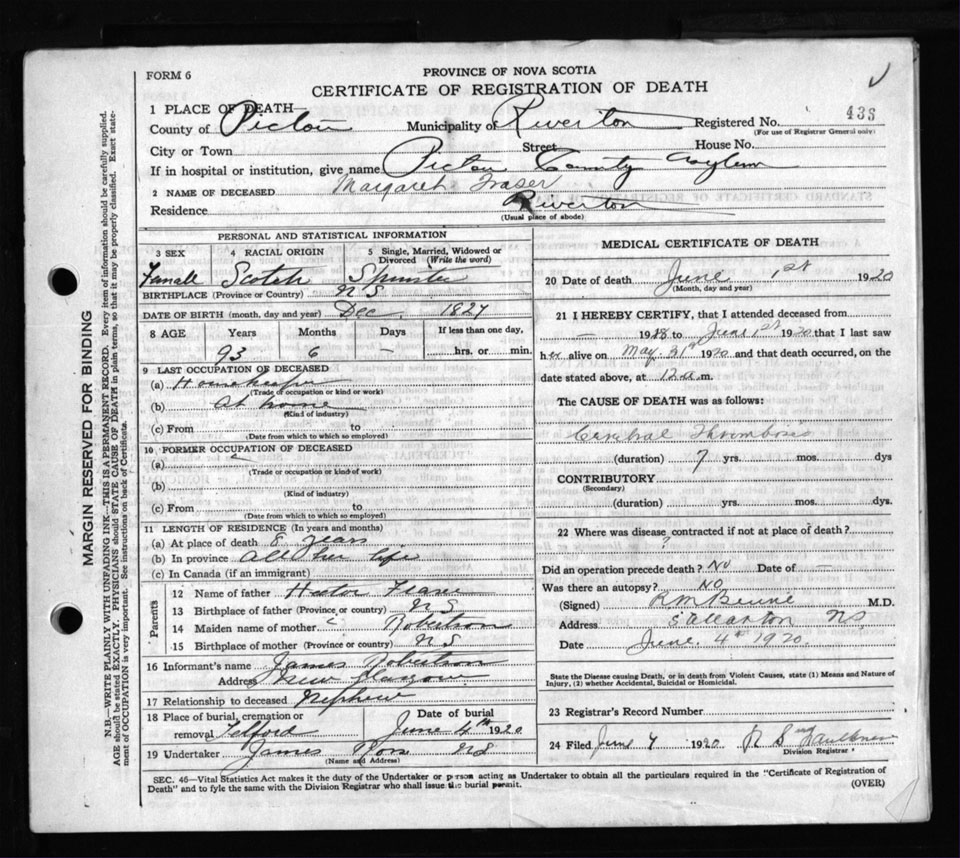 FORM 6
PROVINCE OF NOVA SCOTIA
CERTIFICATE OF REGISTRATION OF DEATH
1 PLACE OF DEATH—
County of Pictou Municipality of Riverton Registered No. 435
(For use of Registrar General only)
City or Town Street House No.
If in hospital or institution, give name Pictou County Asylum
2 NAME OF DECEASED Margaret Fraser
Residence Riverton
(Usual place of abode)
PERSONAL AND STATISTICAL INFORMATION
3 SEX 4 RACIAL ORIGIN 5 Single, Married, Widowed or Divorced (Write the word)
Femall Scotch Spinster
BIRTHPLACE (Province or Country) N S
DATE OF BIRTH (month, day and year) Dec. 1827
8 AGE Years Months Days If less than one day,
93 6 — hrs. or min.
9 LAST OCCUPATION OF DECEASED
(a) Housekeeper
(Trade of occupation or kind of work)
(b) at home
(Kind of industry)
(c) From to
(Date from which to which so employed)
10 FORMER OCCUPATION OF DECEASED
(a)
(Trade of occupation or kind of work)
(b)
(Kind of industry)
(c) From to
(Date from which to which so employed)
11 LENGTH OF RESIDENCE (In years and months)
(a) At place of death 8 years
(b) In province all her life
(c) In Canada (if an immigrant)
Parents
12 Name of father Hector Fraser
13 Birthplace of father (Province or country) N S
14 Maiden name of mother Robertson
15 Birthplace of mother (Province or country) N S
16 Informant's name James Robertson
Address New Glasgow
17 Relationship to deceased Nephew
18 Place of burial, cremation or removal Telford Date of burial June 4th 1920
19 Undertaker James Ross NS
(Name and Address)
MEDICAL CERTIFICATE OF DEATH
20 Date of death June 1st 1920
(Month, day and year)
21 I HEREBY CERTIFY, that I attended deceased from
— 1918 to June 1st 1920 that I last saw
her alive on May 31st 1920 and that death occurred, on the
date stated above, at 12 a. m.
The CAUSE OF DEATH was as follows:
Cerebral Thrombosis
(duration) 7 yrs. mos. dys
CONTRIBUTORY
(Secondary)
(duration) yrs. mos. dys.
22 Where was disease contracted if not at place of death?
?
Did an operation precede death? No Date of —
Was there an autopsy? NO
(Signed) M.D.
Address Stellarton NS
Date June 4th 1920
State the Disease causing Death, or in death from Violent Causes, state (1) Means and Nature of Injury, (2) whether Accidental, Suicidal or Homicidal.
23 Registrar's Record Number
24 Filed June 4 1920 Faulkner
Division Registrar
SEC. 45—Vital Statistics Act makes it the duty of the Undertaker or person acting as Undertaker to obtain all the particulars required in the "Certificate of Registration of
Death" and to fyle the same with the Division Registrar who shall issue the burial permit. (OVER)
MARGIN RESERVED FOR BINDING
N.B.—WRITE PLAINLY WITH UNFADING INK—THIS IS A PERMANENT RECORD. Every item of information should be carefully supplied.
AGE should be stated EXACTLY. PHYSICIANS should STATE CAUSE OF DEATH in plain terms, so that it may be properly classified. Exact state-
ment of OCCUPATION is very important. See instructions on back of Certificate.